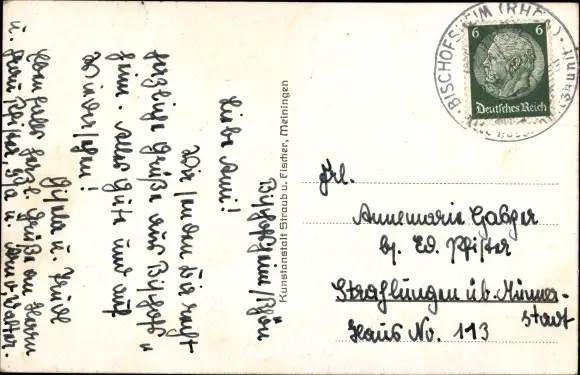 Bischofsheim/Rhön
Liebe Anni!
Wir senden Dir recht
herzliche Grüße aus Bischofs-
heim. Alles Gute und auf
Wiedersehen!
Gisela u.
herzl. Grüße an Herrn
u. Frau Pfister, u.
Kunstanstalt Straub u. Fischer, Meiningen
BISCHOFSHEIM (RHÖN)
6 6
Deutsches Reich
Frl.
Annemarie
bj. Ed. Pfister
Strahlungen üb. Münner-
stadt
Haus No. 113